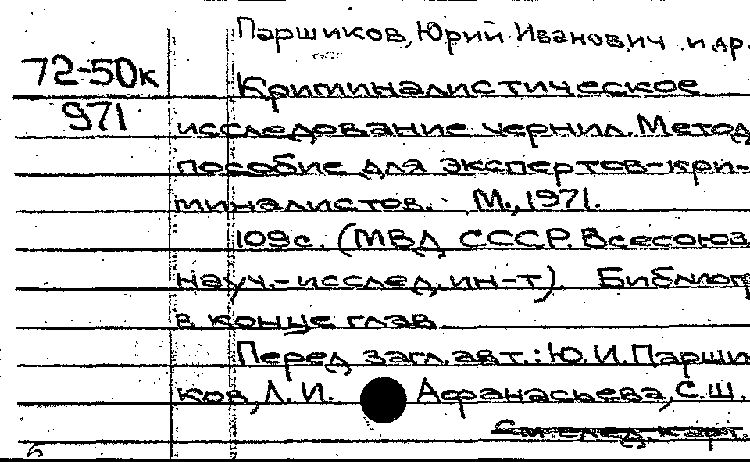 Паршиков, Юрий Иванович и др.
72-50к
971
Криминалистическое
исследование чернил. Метод
пособие для экспертов-кри-
миналистов. М., 1971.
109с. (МВД СССР. Всесоюз
науч.-исслед. ин-т). Библиогр
в конце глав.
Перед загл. авт.: Ю.И. Парши
ков, Л.И. Афанасьева, С.Ш.
См. след. карт.